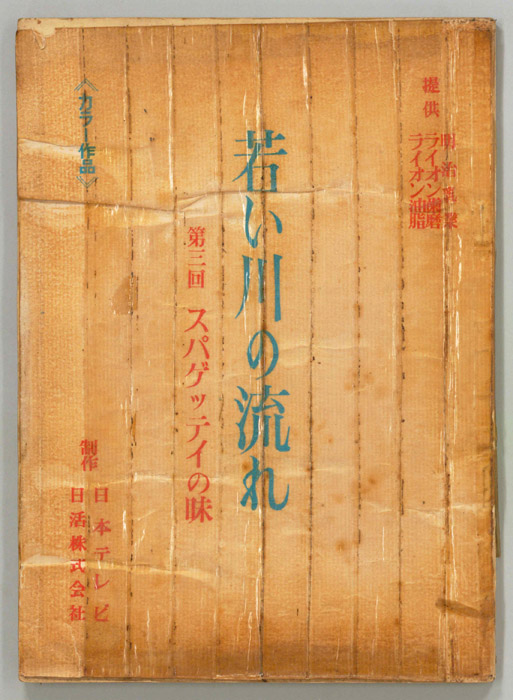 提供
明治乳業
ライオン歯磨
ライオン油脂
若い川の流れ
第三回 スパゲッテイの味
《カラー作品》
制作
日本テレビ
日活株式会社